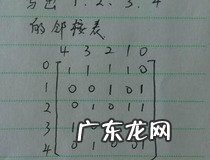 写出1、2、3、4
的邻接表
4 3 2 1 0
0 1 1 1 1 0
1 0 0 1 0 1
2 0 1 0 1 1
3
4 0 1 0
广东龙网